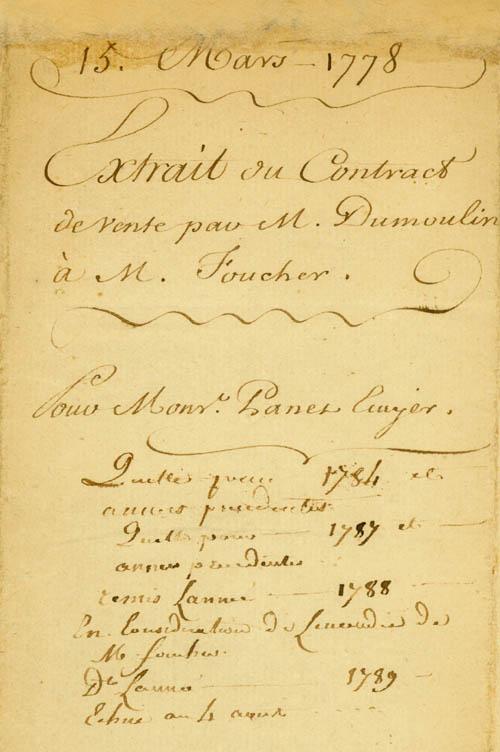 15. Mars - 1778
Extrait du Contract
de vente par M. Dumoulin
à M. Foucher.
Pour Monr. Panet Ecuyer.
Quitte pour 1784 et
années precedentes
Quitte pour 1787 et
annee precedentes
remis Lanneé 1788
En Consideration de Lincendie de
Mr foucher
Dt Lanné 1789
Echue au 4 aoust